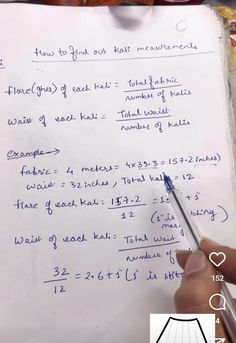 C
How to find out kali measurements
flare(gher) of each kali = Total fabric
number of kalis
waist of each kali = Total waist
number of kalis
example →
fabric = 4 meters = 4×39.3 = 157.2 inches
waist = 32 inches, Total kali = 12
flare of each kali = 157.2
12
+1"
(1" is
king)
Waist of each kali = Total waist
number of
32
12
= 2.6 + 1" (1" is
152
4